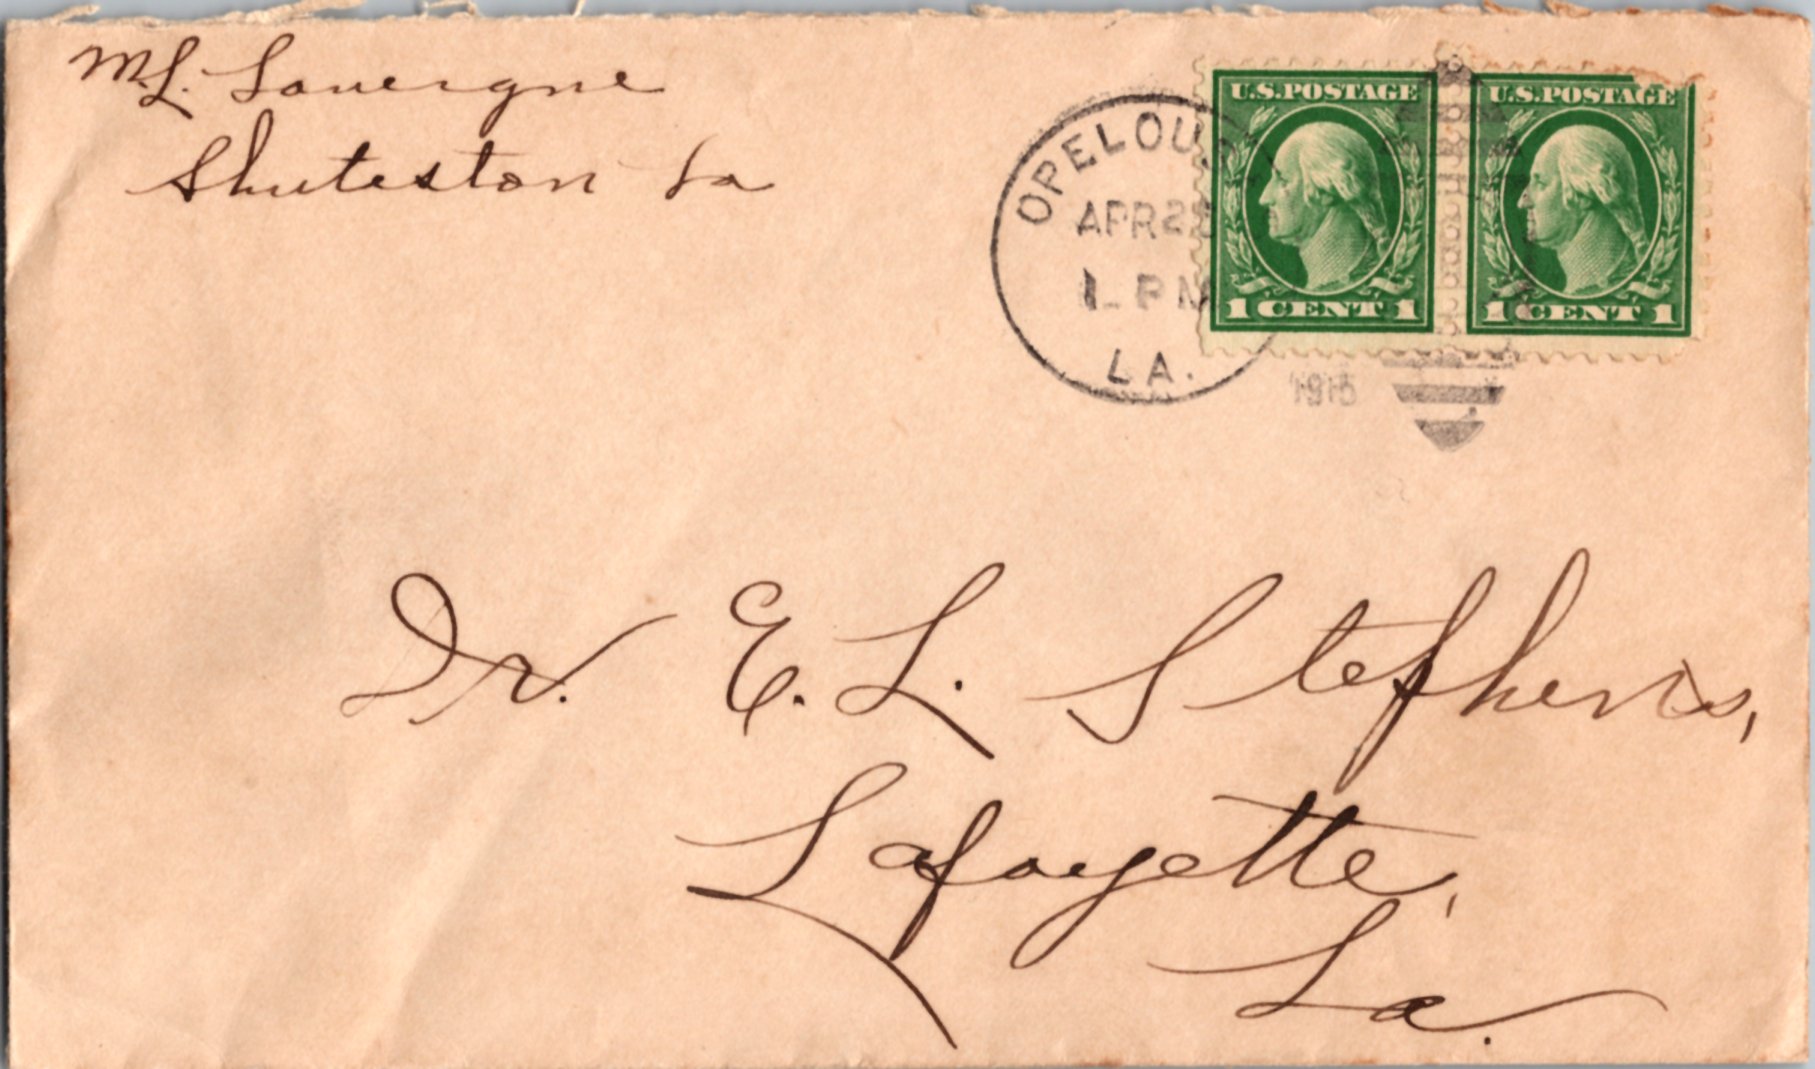 M.L. Lavergne
Shuteston La
OPELOUS
APR 2
1- PM
LA.
1915
U.S. POSTAGE
1 CENT 1
U.S. POSTAGE
1 CENT 1
Dr. E. L. Stephens,
Lafayette,
La.